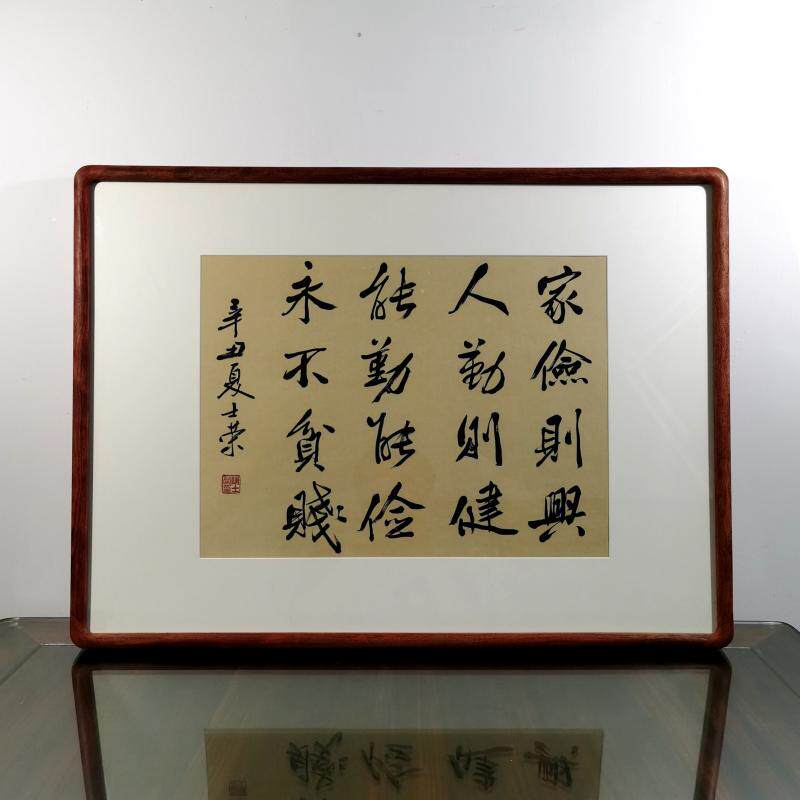 家儉則興
人勤則健
能勤能俭
永不貧賤
辛丑夏士荣